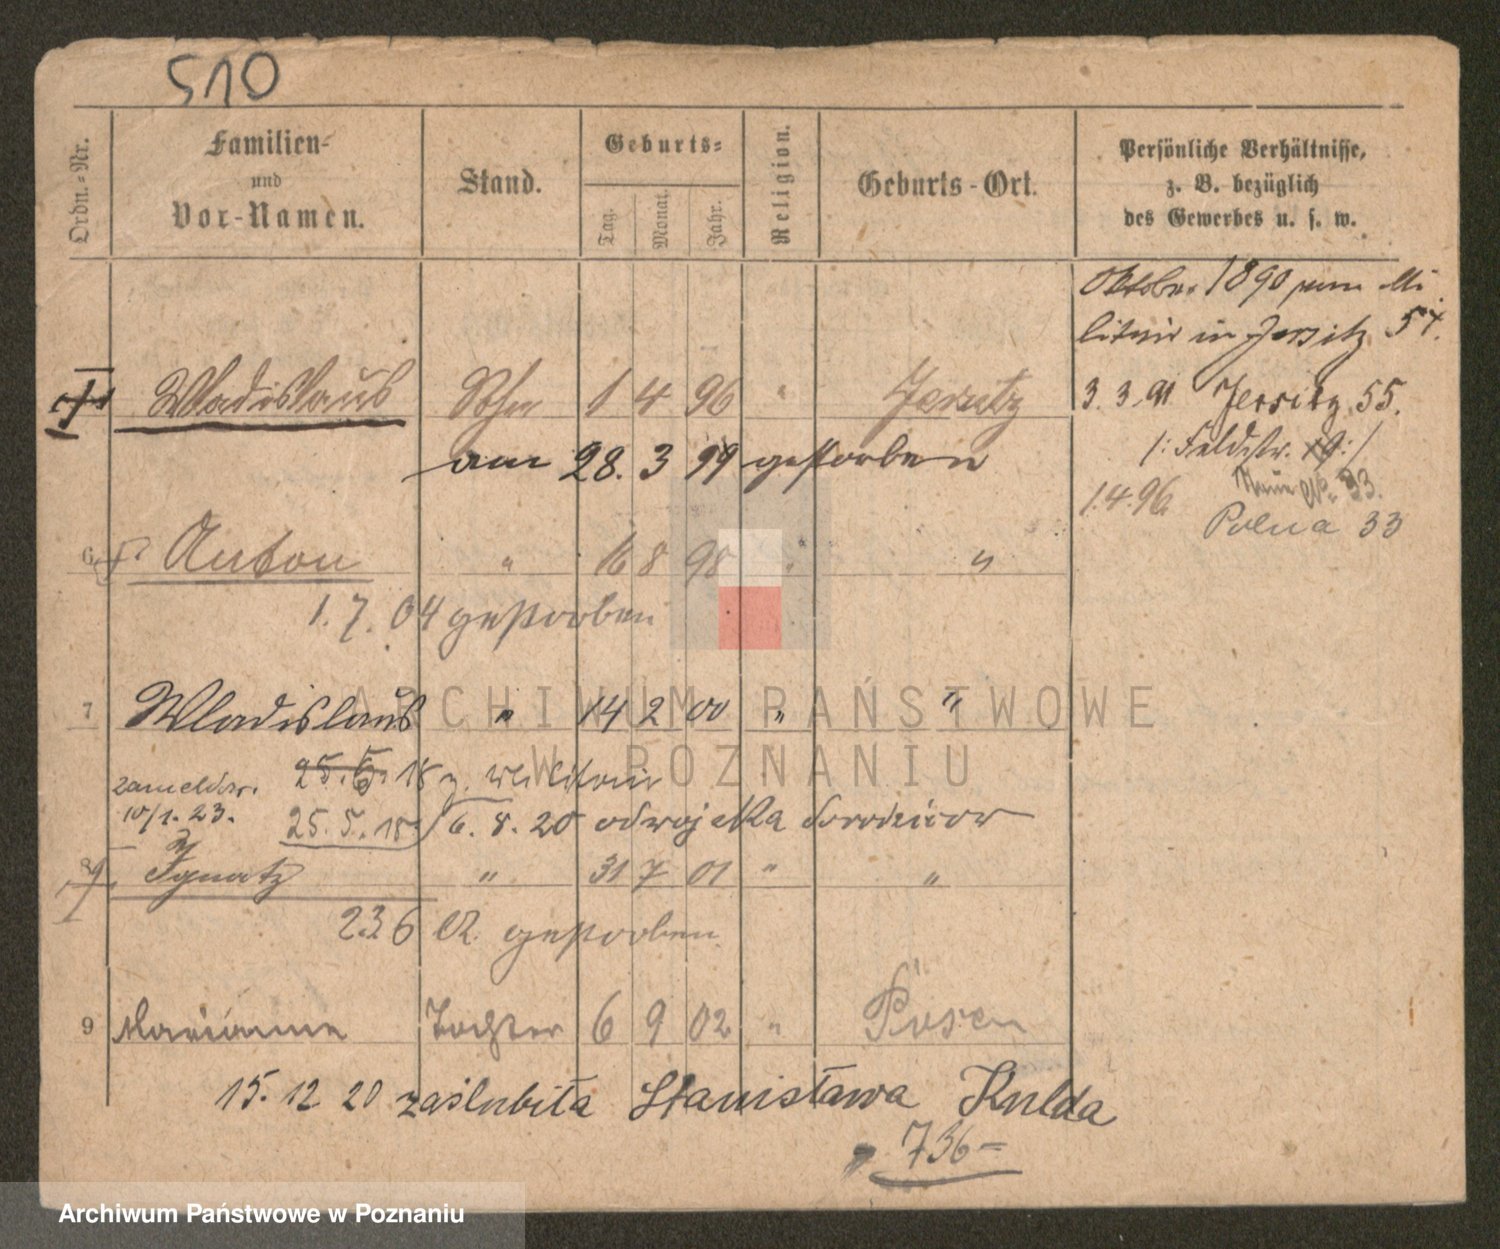 510
Ordn.-Nr.
Familien-
und
Vor-Namen.
Stand.
Geburts-
Tag.
Monat.
Jahr.
Religion.
Geburts-Ort.
Persönliche Verhältnisse,
z. B. bezüglich
des Gewerbes u. s. w.
Oktober 1890 vom Mi
litair in Jersitz 57.
Wladislaus Sohn 1 4 96 " Jersitz
3.3.91 Jersitz 55.
am 28. 3 99 gestorben
/: Feldstr. :/
1.4.96. No. 33.
Polna 33
6 Anton " 16 8 98 " "
1. 7. 04 gestorben
7 Wladislaus " 14 2 00 " "
25.6.18 z. Militair
zameldow.
10/1. 23.
25.5.18 / 6. 8. 20 od wojska do rodziców
8 Ignatz " 31 7 01 " "
23 6 02. gestorben
9 Marianna Tochter 6 9 02 " Posen
15. 12 20 zaślubiła Stanisława Kulda
736=
ARCHIWUM PAŃSTWOWE
W POZNANIU
Archiwum Państwowe w Poznaniu